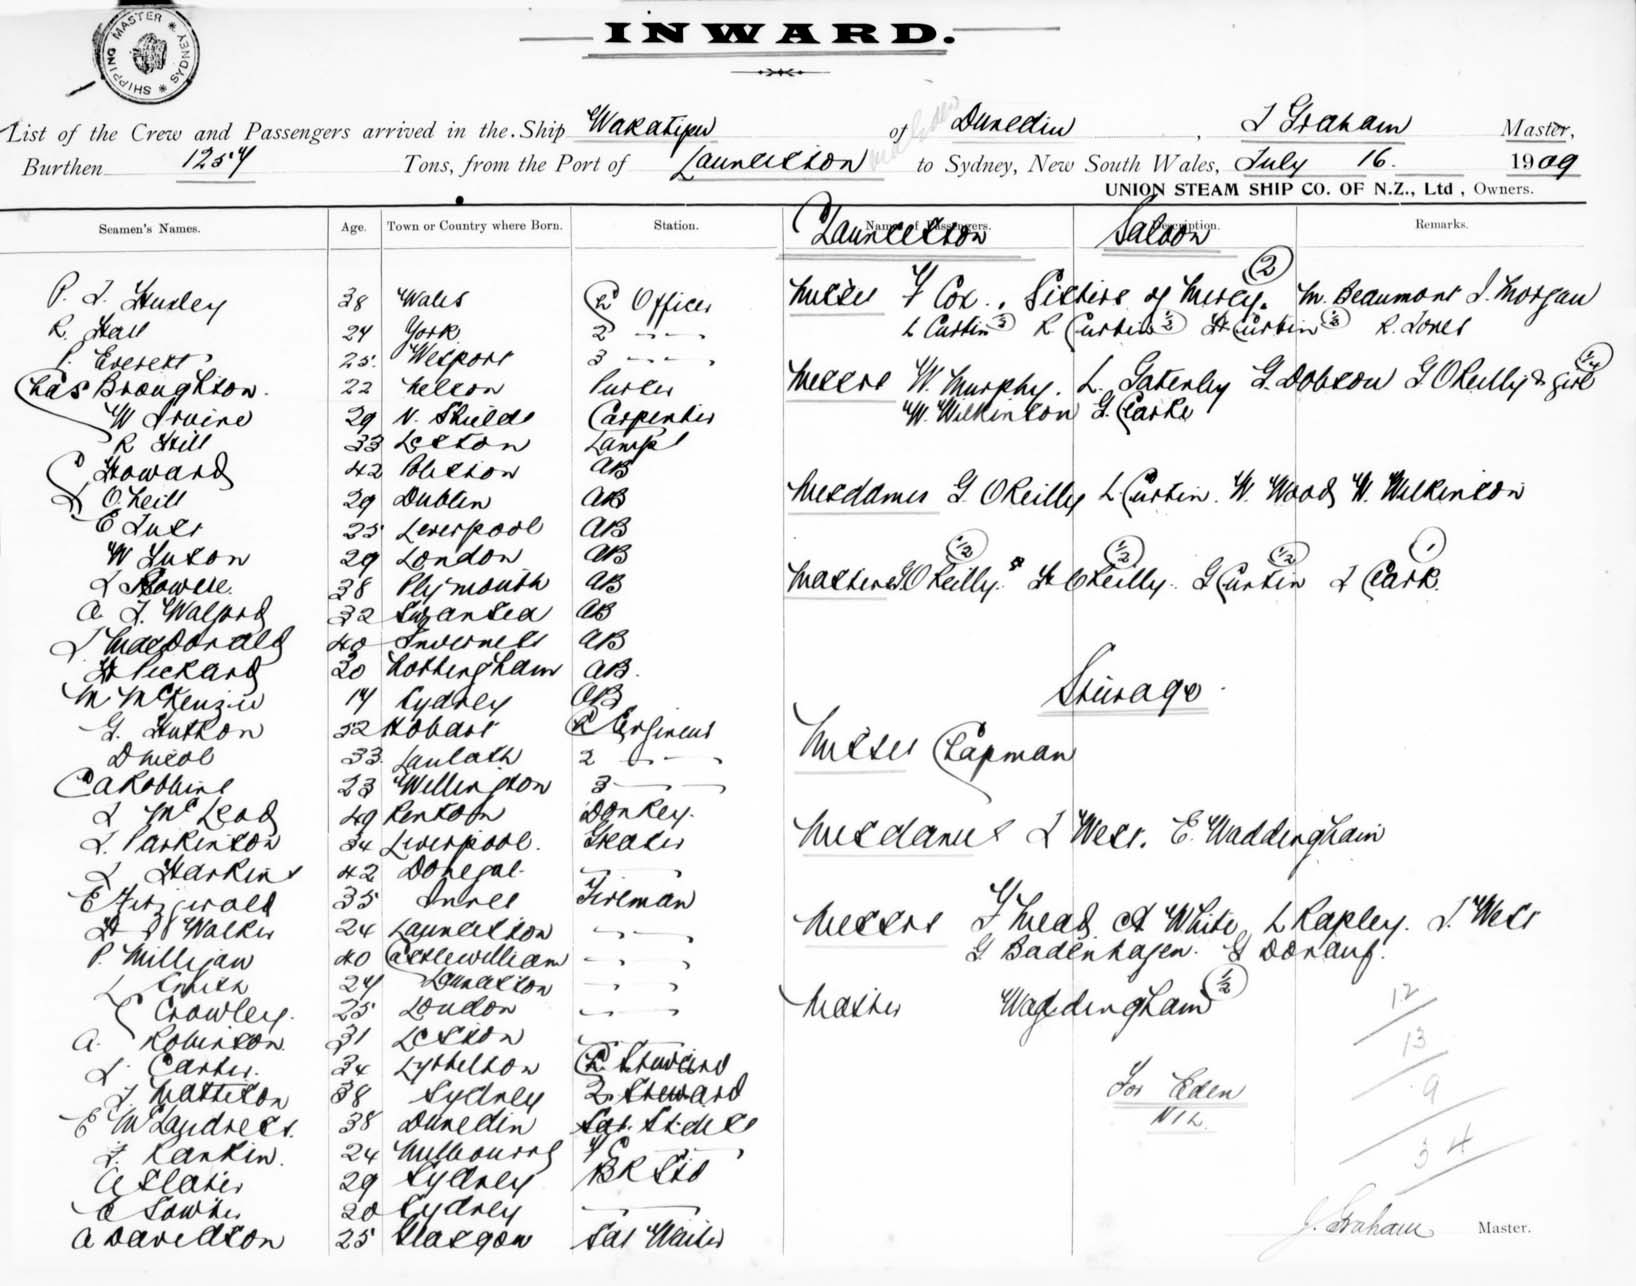 SHIPPING MASTER * SYDNEY *
INWARD.
List of the Crew and Passengers arrived in the Ship Wakatipu of Dunedin, J Graham Master,
Burthen 1257 Tons, from the Port of Launceston to Sydney, New South Wales, July 16. 1909
UNION STEAM SHIP CO. OF N.Z., Ltd, Owners.
Seamen's Names. Age. Town or Country where Born. Station. Names of Passengers. Description. Remarks.
Launceston Saloon
P. J. Huxley 38 Wales C Officer
R. Hall 24 York 2 " "
P. Everett 25. Wesport 3 " "
Chas Broughton. 22 Nelson Purser
W Irvine 29 N. Shields Carpenter
R Hill 33 Leston Lamps
C Howard 42 AB
J O'Neill 29 Dublin AB
E 25 Liverpool AB
W Luxon 29 London AB
J 38 Plymouth AB
A J. Walford 32 Swansea AB
J MacDonald 40 Inverness AB
H Pickard 20 Nottingham AB.
M McKenzie 17 Sydney OB
G. Hutton 52 Hobart C Engineer
D Nicol 33 2 " "
C A Robbins 23 Wellington 3 "
J McLeod 49 Donkey.
J. Parkinson 34 Liverpool. Greaser
J Harkins 42 Donegal. "
E Fitzgerald 35 Fireman
H J Walker 24 Launceston " "
P. Milligan 40 Castlewilliam " "
L Smith 24 Launceston " "
C Crowley. 25 London " "
A. Robinson 31 Leston "
J. Carter. 34 Lyttelton C Steward
J. Mattison 38 Sydney 2. Steward
E McLandress. 38 Dunedin
J. Rankin. 24 Melbourne
A Slater 29 Sydney BR Std
E Sowter 20 Sydney "
A Davidson 25 Glasgow Sal Waiter
Misses F Cox., Sisters of Mercy. (2) M. Beaumont J. Morgan
L Curtin ½ R Curtin ½ H Curtin ½ R. Jones
Messrs W. Murphy. L. Gatenby G. Dobson G O'Reilly & girl
W. Wilkinson G. Clarke
Mesdames G. O'Reilly L. Curtin. W. Wood W. Wilkinson
Masters G O'Reilly. ½ H O'Reilly. ½ G Curtin ½ J Clark. 1
Steerage
Misses Chapman
Mesdames J West. E. Waddingham
Messrs F Mead A White L Rapley. J. West
G Badenhagen. G
Master Waddingham ½
For Eden
Nil.
12
13
9
34
J. Graham Master.